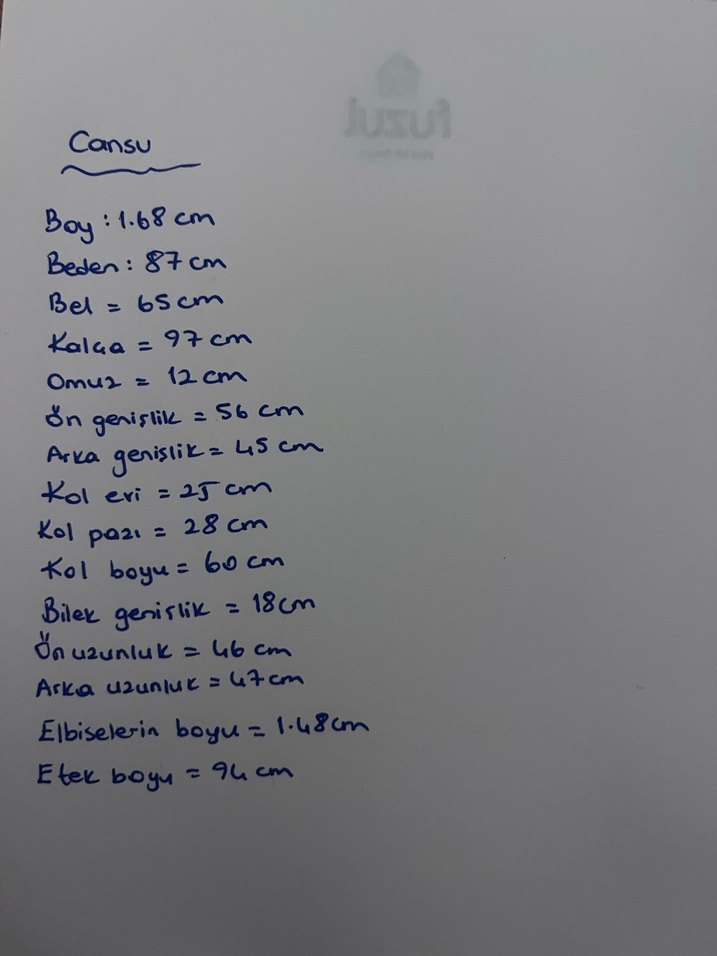 fuzul
Cansu
Boy : 1.68 cm
Beden : 87 cm
Bel = 65 cm
Kalça = 97 cm
Omuz = 12 cm
Ön genişlik = 56 cm
Arka genişlik = 45 cm
Kol evi = 25 cm
Kol pazı = 28 cm
Kol boyu = 60 cm
Bilek genişlik = 18 cm
Ön uzunluk = 46 cm
Arka uzunluk = 47 cm
Elbiselerin boyu = 1.48 cm
Etek boyu = 94 cm